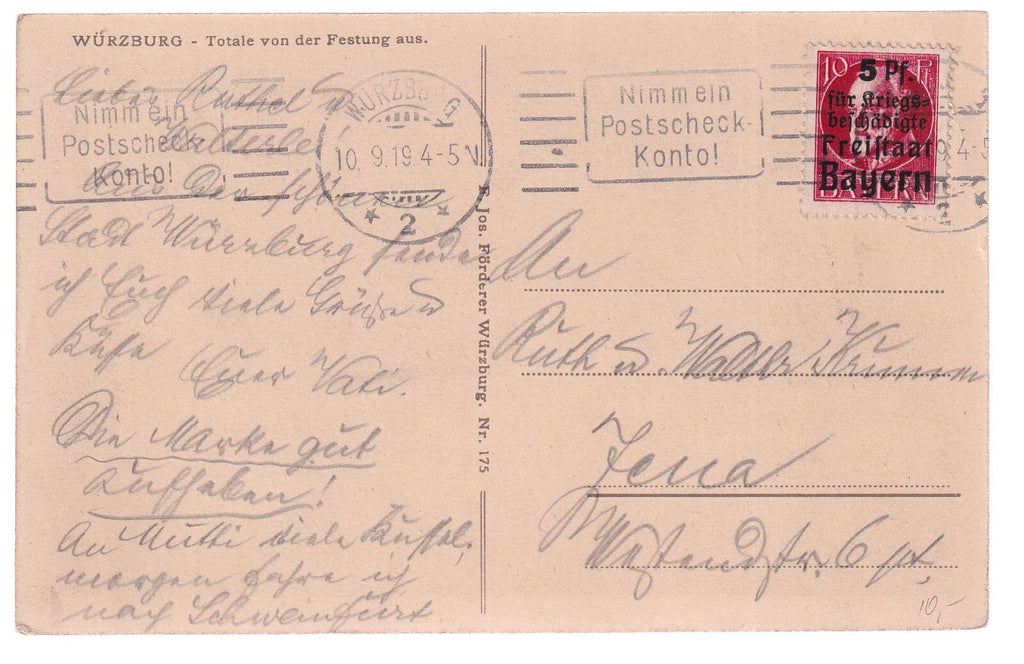 WÜRZBURG - Totale von der Festung aus.
Lieber Ruthel u
Walterle
Aus der schönen
Stadt Würzburg sende
ich Euch viele Grüße u
Küsse
Euer Vati.
Die Marke gut
aufheben!
An Mutti viele Küssel,
morgen fahre ich
nach Schweinfurt
Nimm ein
Postscheck-
Konto!
WÜRZBURG
10.9.19 4-5 N
2
F. Jos. Förderer Würzburg. Nr. 175
Nimm ein
Postscheck-
Konto!
10 Pf
5 Pf.
für Kriegs=
beschädigte
Freistaat
Bayern
BAYERN
9 4-5
An
Ruth u. Walter
Jena
Westendstr. 6 pt.
10,-